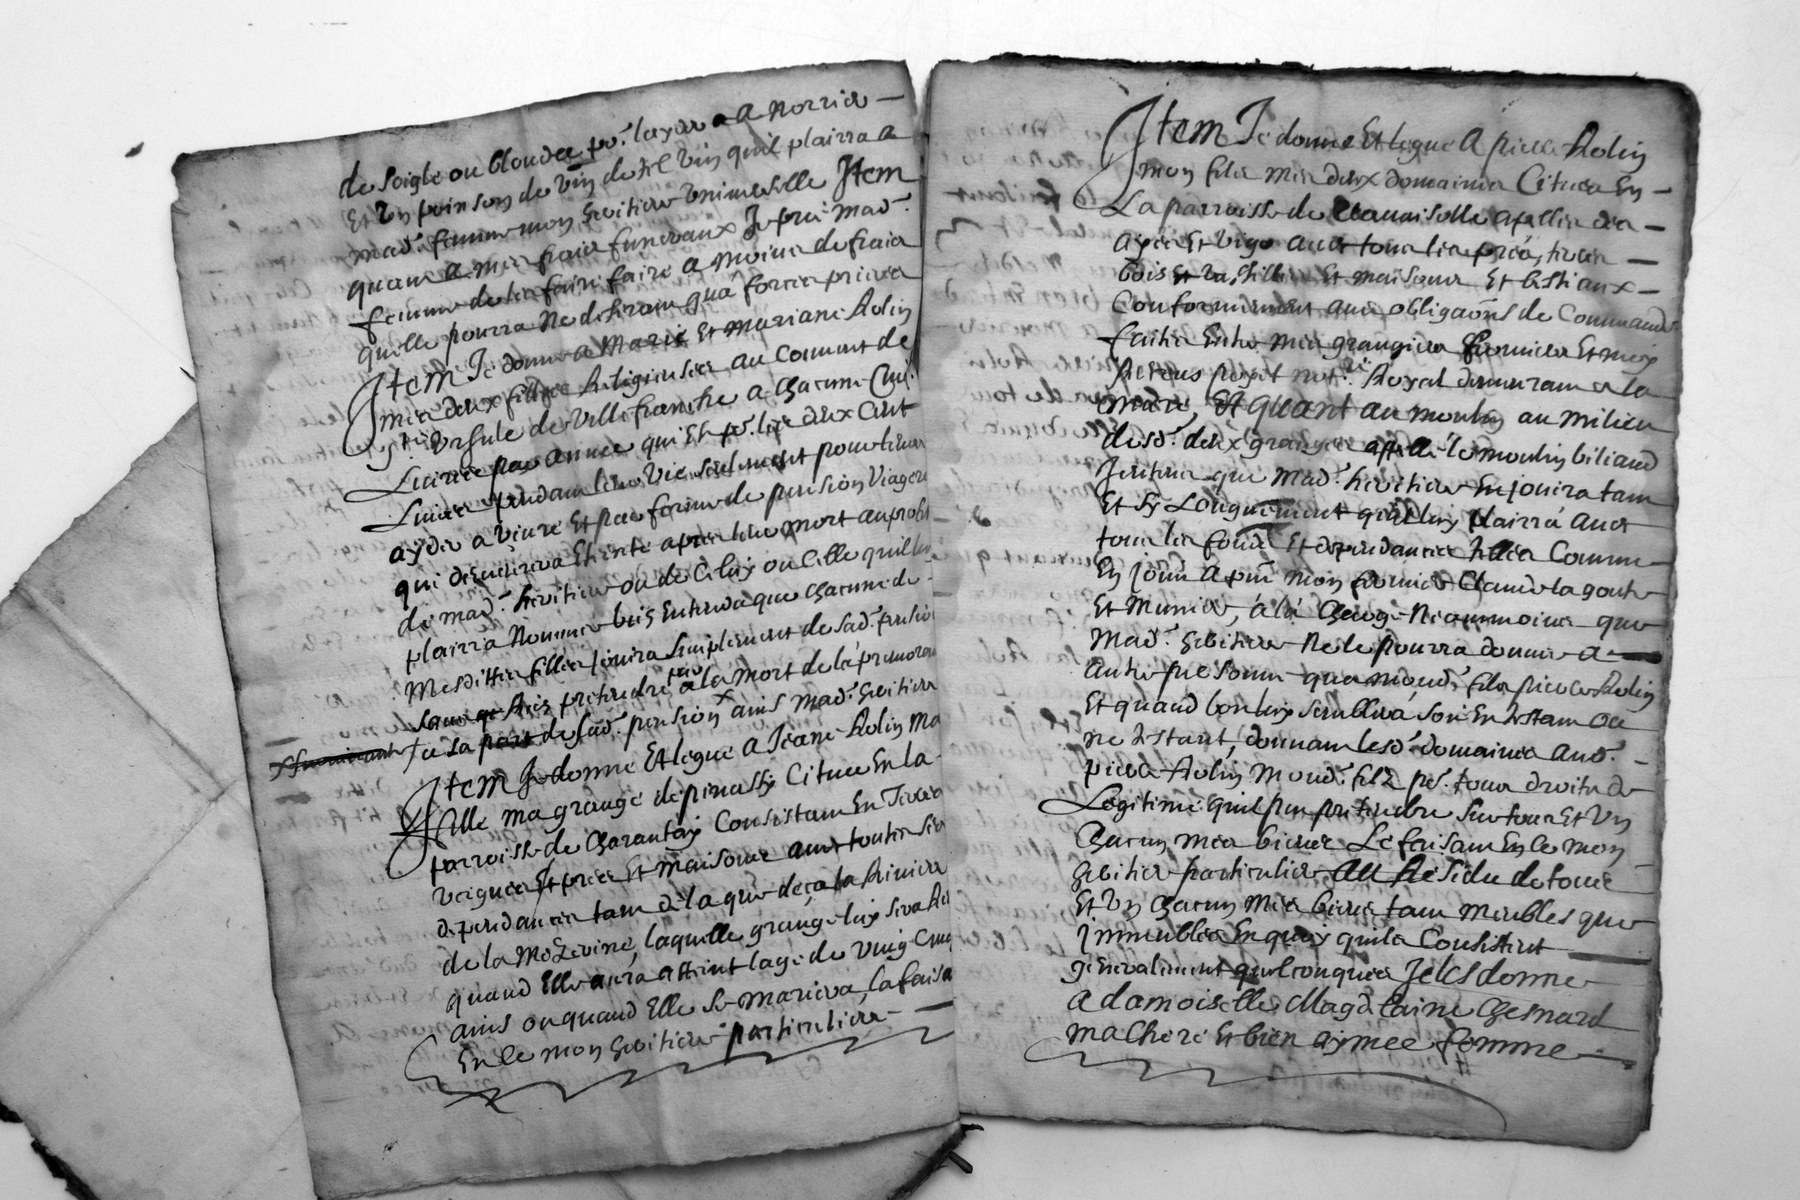 de soigle ou blondee po.r layder a a norrir —
Et un poinson de vin de tel vin quil plairra a
mad.e femme mon heritiere universelle Item
quant a mes frais funeraux Je prie mad.e
femme de les faire faire a moins de frais
quelle pourra ne desirant qua force prieres
Item Je donne a Marie Et Mariane Rolin
mes deux filles Religieuses au Couvent de
s.te Ursule de Villefranche a chacune Cent
Livres par annee qui est po.r les deux Cent
Livres pendant leur vie seulement pour leur
ayder a vivre Et par forme de pension viagere
qui demeurera Eteinte apres leur mort au profit
de mad.e heritiere ou de Celuy ou Celle quil luy
plairra nommer bien Entendu que chacune de
Mesdittes filles jouira simplement de sad.e pension
sans que Rien pretendre par la mort de la premorante
a la part de sad.e pension ains mad.e heritiere
Item Je donne Et legue a Jeane Rolin ma
fille ma grange depinassy Cituee En la
parroisse de Charantay Consistant En Terres
vergnes Et pres Et maisons avec toutes ses
dependances tant dela que deca la Riviere
de la Mozerine, laquelle grange luy sera
quand Elle aura atteint lage de vingt Cinq
ains ou quand Elle se mariera, la faisant
En ce mon heritiere particuliere —
Item Je donne Et legue A pierre Rolin
mon fils mes deux domaines Cituea En —
La parroisse de appelles des —
Et avec tous les pres, terres —
bois Et Et maisons Et bestiaux —
Conformement aux obligaõns de Commande
faittes Entre mes grangers fermiers Et moy
Receus not.re Royal demeurant a la
mare, Et quant au moulin au milieu
desd. deux granges appellé le moulin biliaud
Jentens que mad.e heritiere En jouira tant
Et sy Longuement quil luy plairra avec
tous les fonds Et dependances telles Comme
En jouit a pnt mon fermier Claude lagoute
Et Munier, a la Charge Neanmoins que
Mad.e heritiere ne le pourra donner a —
autre personne qua mond. fils pierre Rolin
Et quand bon luy semblera soit En testant ou
ne testant, donnant lesd. domaines aud.
pierre Rolin mond. filz po.r tous droits de
Legitime quil peu pretendre sur tous Et un
chacun mes biens Le faisant En ce mon
heritier particulier Au Residu de tous
Et un chacun mes biens tant meubles que
immeubles En quoy quils Consistent
generalement quelconques Je les donne
a damoiselle Magdelaine Chesnard
ma Chere Et bien aymee femme —